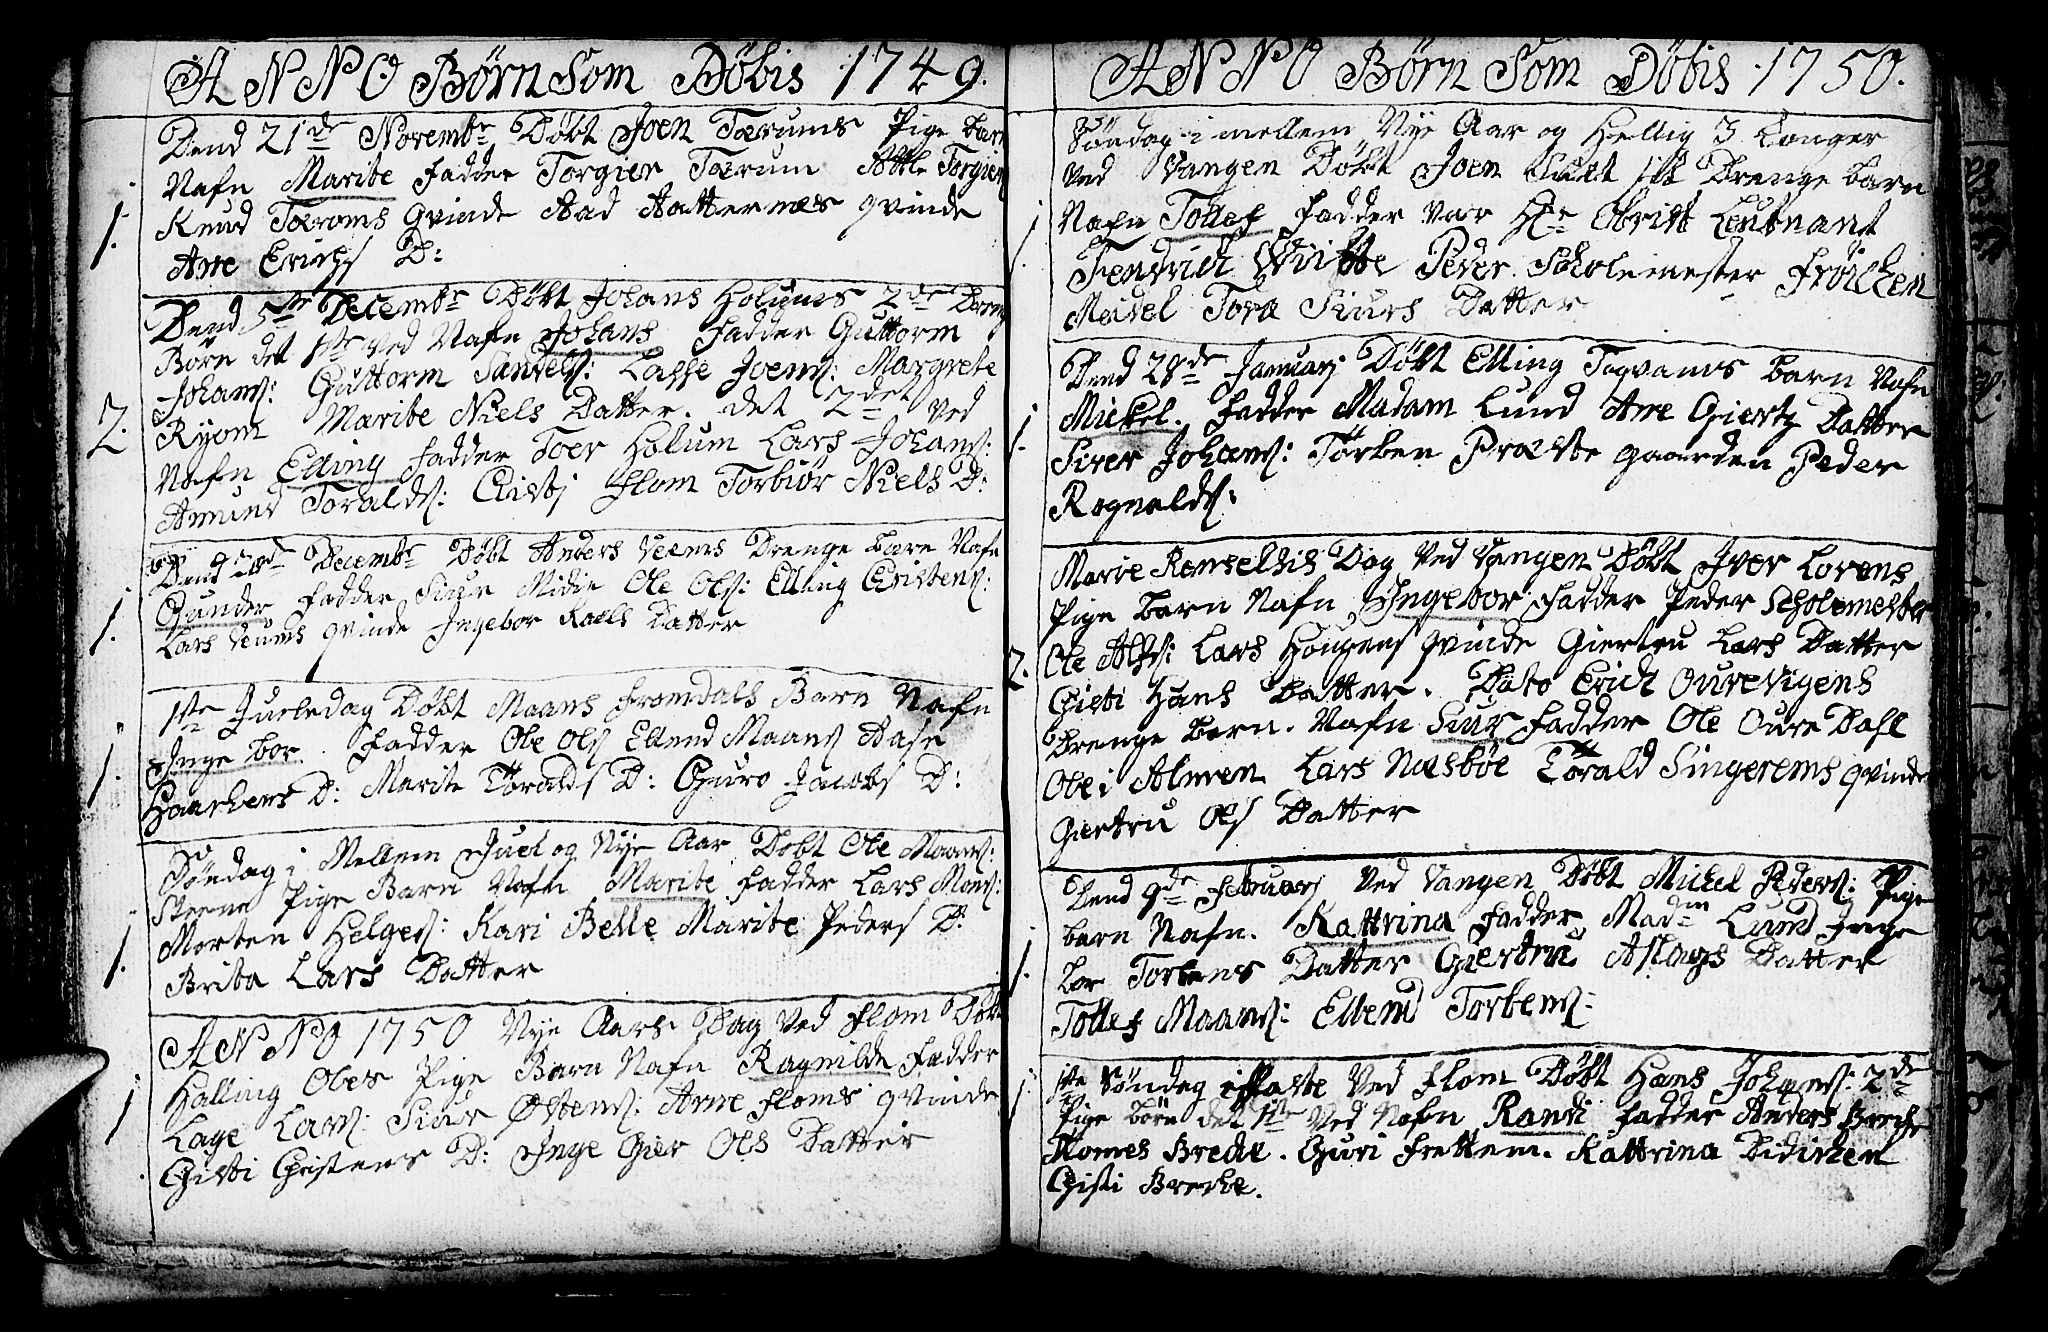 ANNO Børn Som Döbis 1749.
Dend 21de Novembr Döbt Joen Tørums Pige barn
Nafn Maritte Fadder Torgier Tørum Torgier
1. Knud Tøroms Qvinde Aad qvinde
Ane Erichs D:
Dend 5te Decembr Döbt Johans Holums 2de Dreng
Børn det 1ste ved Nafn Johans Fadder Guttorm
Johans: Guttorm Lasse Joens: Margrete
2. Ryom Marite Niels Datter. det 2det ved
Nafn Elling Fadder Toer Holum Lars Johans:
Amund Toralds: Christj Flom Torbiör Niels D:
Dend 28de Decembr Döbt Anders Veems Drenge barn Nafn
Gunder Fadder Siur Midie Ole Ols: Elling Cristens:
1. Lars Veums qvinde Ingebor Datter
1ste Jueledag Döbt Maans Fromdals Barn Nafn
Inge bor. Fadder Ole Ols Ellend Maans Aase
1. D: Marite Toralds D: Guro Jacobs D:
Söndag i Mellem Juel og Nye Aar Döbt Ole Maans:
Steene Pige Barn Nafn Marite Fadder Lars Mons:
1. Morten Helges: Kari Belle Marite Peders D:
Brita Lars Datter
ANNO 1750 Nye Aars Dag Ved Flom Döbt
Halling Oles Pige Barn Nafn Ragnilde Fadder
1 Lage Lars: Siur Østens: Arne Floms qvinde
Gisti Cristens D: Inge Gier Ols Datter
ANNO Børn Som Döbis 1750.
Söndag i mellem Nye Aar og Hellig 3 Konger
Ved Vangen Döbt Joen sit Drenge barn
1. Nafn Tollef Fadder var Hr Obrist Leutnant
Fendrich Witte Peder Scholemester Frölchein
Madel Tora Siurs Datter
Dend 28de Januarj Döbt Elling Togvams barn Nafn
1. Mickel. Fadder Madam Lund Ane Giertz Datter
Siver Johans: Törben Præste gaarden Peder
Rognalds:
Marie Renselses Dag Ved Vangen Döbt Iver Lorens
Pige barn Nafn Ingebor Fadder Peder Scholemester
2. Ole Lars Hougens qvinde Giertru Lars Datter
Gisti Hans Datter. Dito Erich Ourevigens
Drenge barn. Nafn Siur Fadder Ole Oure Dahl
Ole i Almen Lars Næsböe Torald Singerems qvinde
Giertru Ols Datter
Dend 9de Februarj Ved Vangen Döbt Mickel Peders: Pige
barn Nafn. Kattrina Fadder, Madm Lund Inge
1. bor Torbens Datter Giertru Aslags Datter
Tollef Maans: Ellend Torbens:
1 1ste Söndag i Faste Ved Flom Döbt Hans Johans: 2de
Pige börn det 1ste Ved Nafn Randi Fadder Anders Breche
Tomes Breche. Guri Frettem. Kattrina Didirken
Gisti Breche.